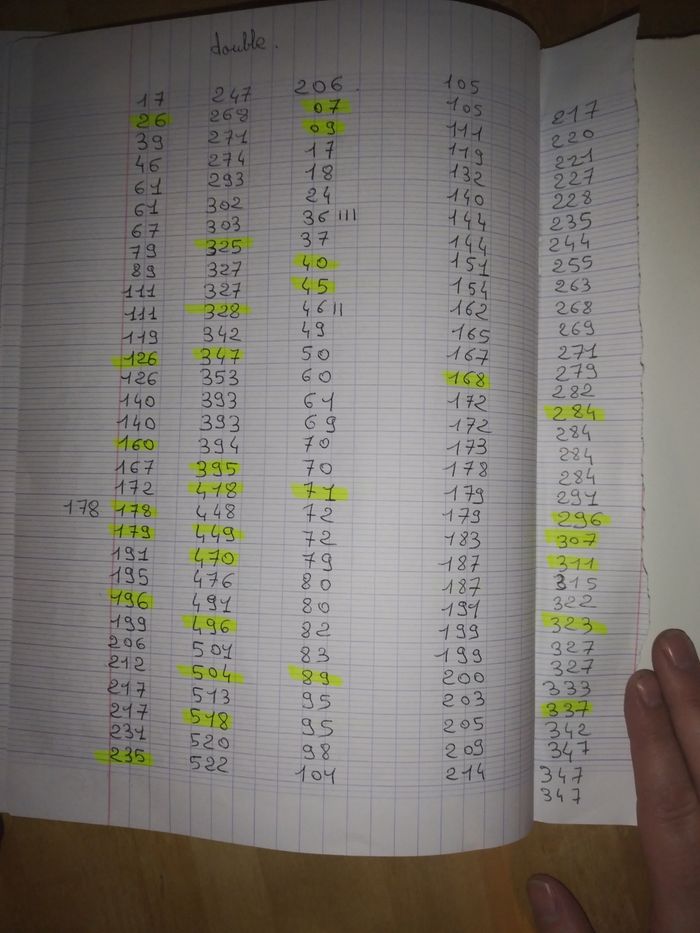 double.
17
26
39
46
61
61
67
79
89
111
111
119
126
126
140
140
160
167
172
178 178
179
191
195
196
199
206
212
217
217
231
235
247
268
271
274
293
302
303
325
327
327
328
342
347
353
393
393
394
395
418
448
449
470
476
491
496
501
504
513
518
520
522
206.
07
09
17
18
24
36 III
37
40
45
46 II
49
50
60
61
69
70
70
71
72
72
79
80
80
82
83
89
95
95
98
104
105
105
111
119
132
140
144
144
151
154
162
165
167
168
172
172
173
178
179
179
183
187
187
191
199
199
200
203
205
209
214
217
220
221
227
228
235
244
255
263
268
269
271
279
282
284
284
284
284
291
296
307
311
315
322
323
327
327
333
337
342
347
347
347